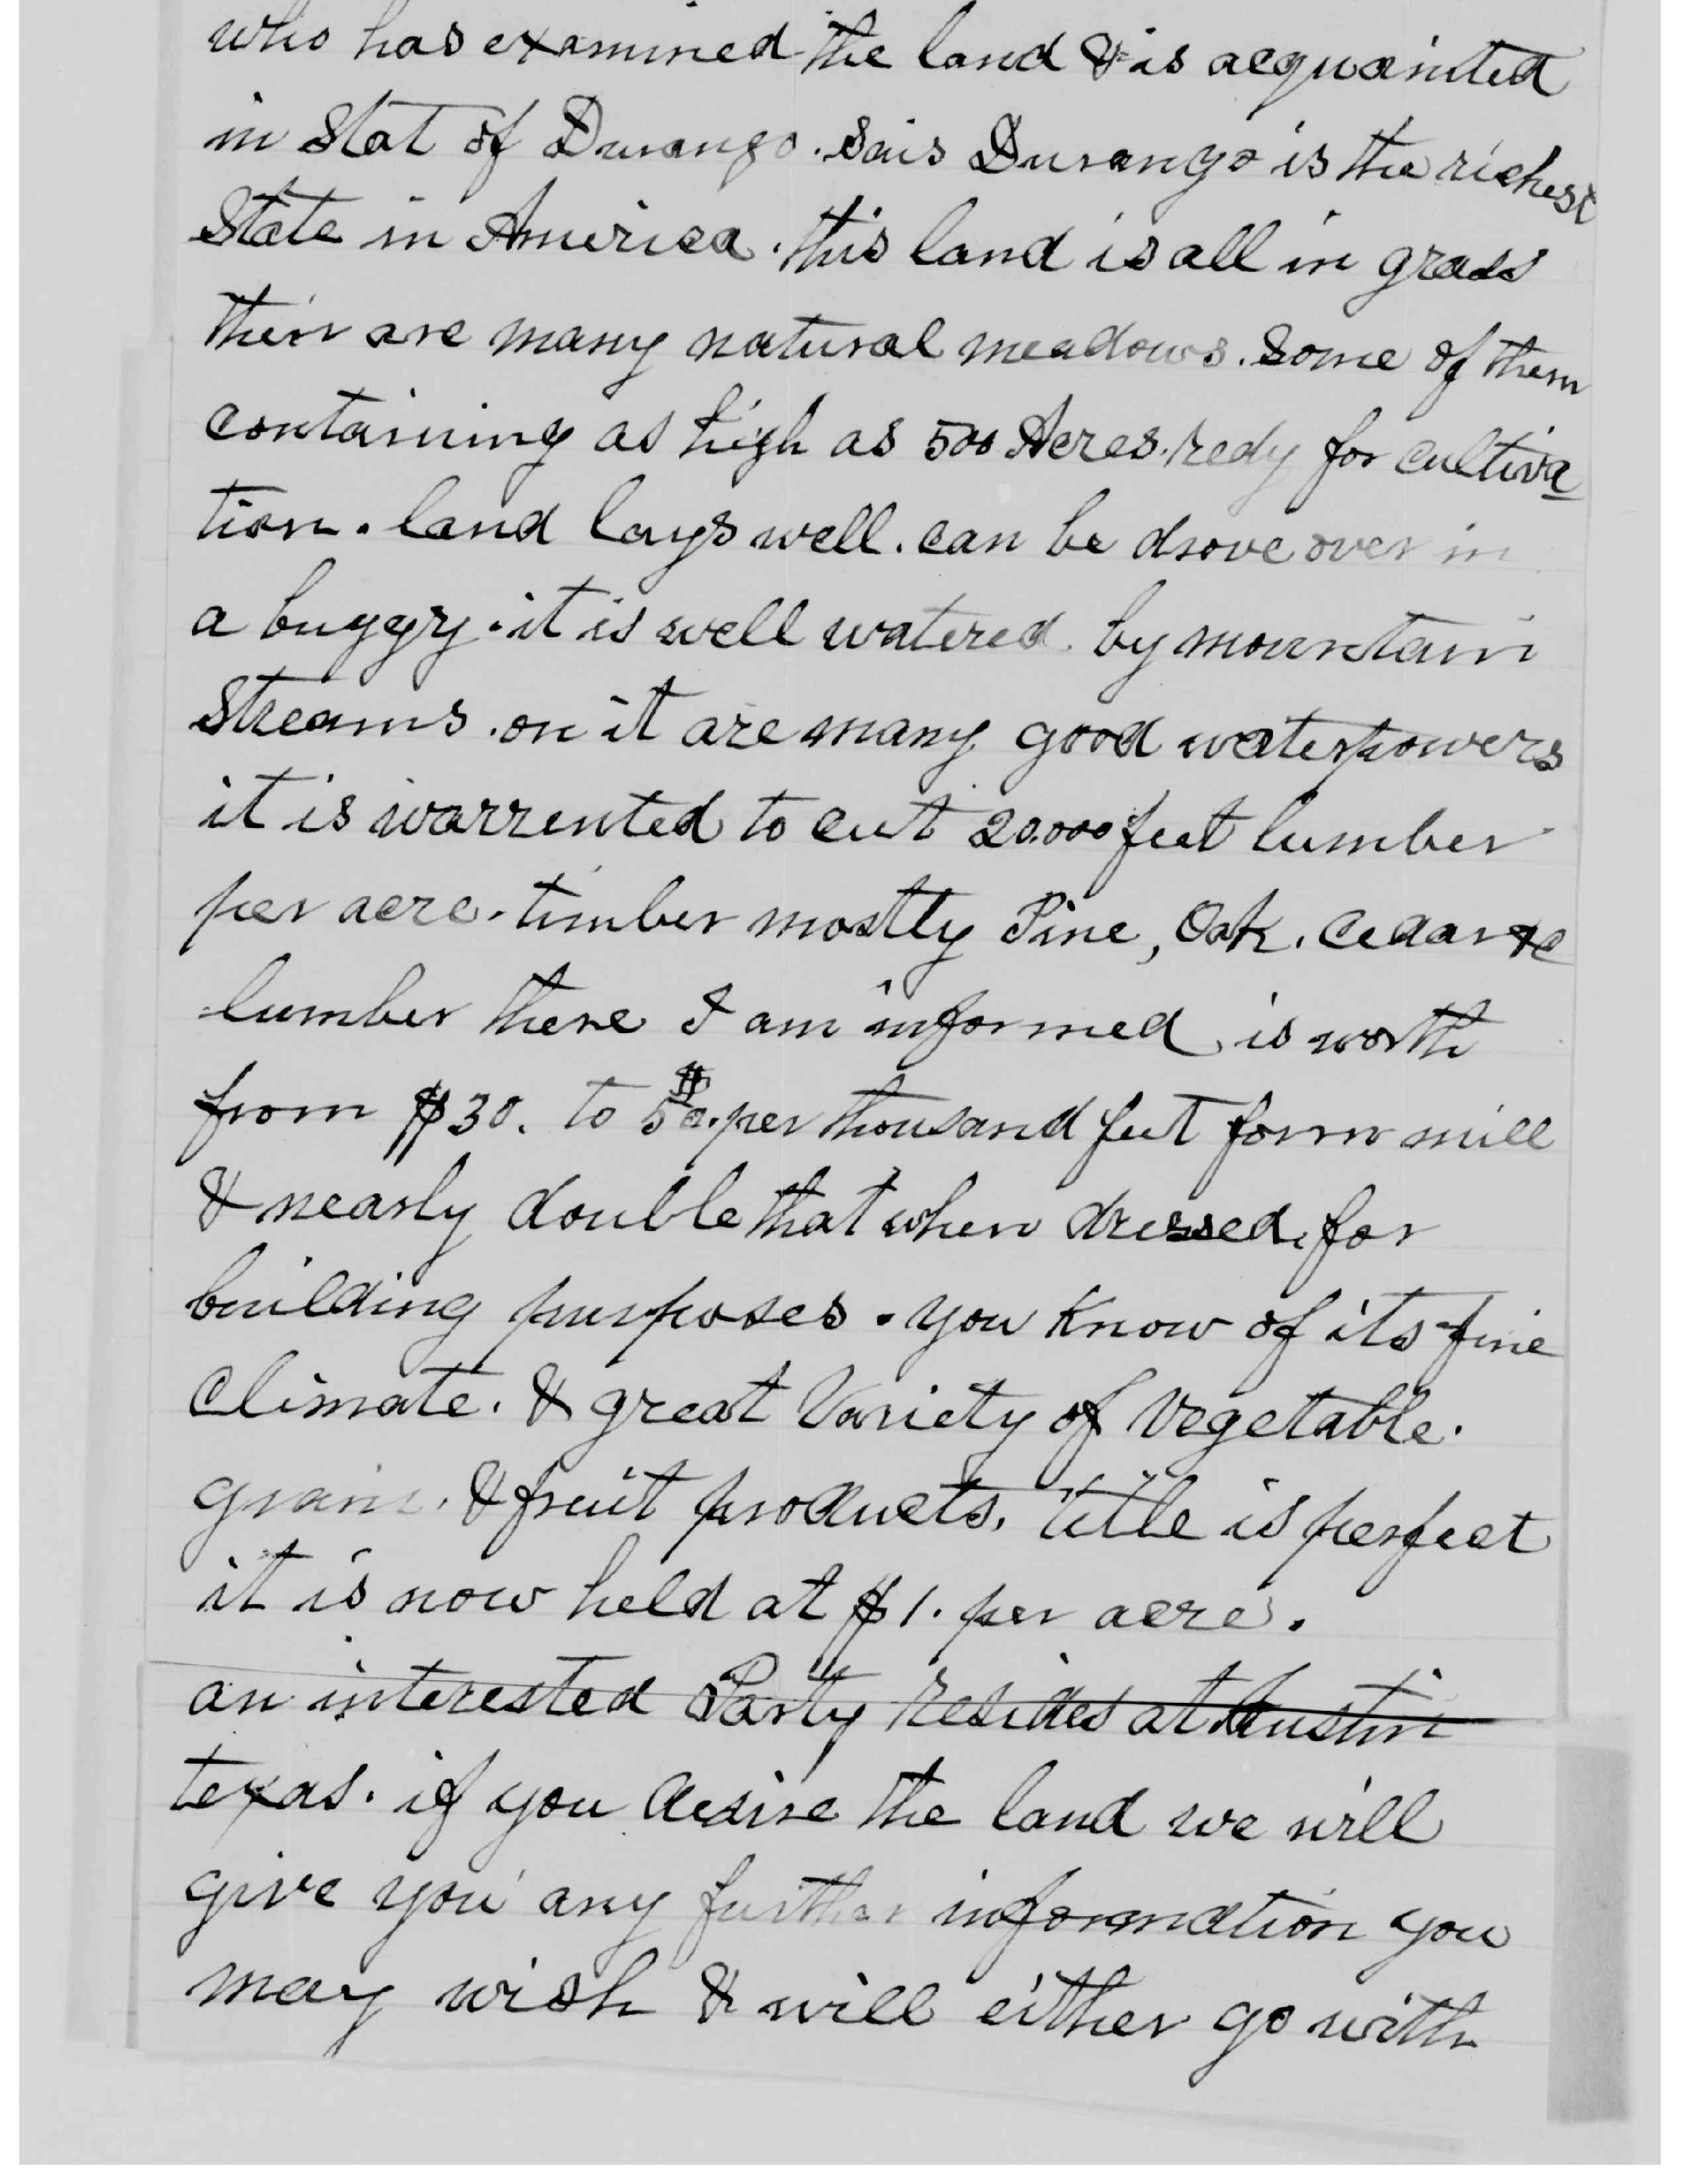 who has examined the land & is acquainted
in Stat of Durango. Sais Durango is the richest
State in America. this land is all in grass
their are many natural meadows. Some of them
containing as high as 500 Acres. redy for cultiva
tion. land lays well. can be drove over in
a buggy. it is well watered. by mountain
Streams. on it are many good waterpowers
it is warrented to cut 20.000 feet lumber
per acre. timber mostly Pine, Oak. Cedar &c
lumber there I am informed is worth
from $30. to $50. per thousand feet form mill
& nearly double that when dressed. for
building purposes. you Know of its fine
Climate. & great Variety of Vegetable.
grain. & fruit products. title is perfect
it is now held at $1. per acre.
an interested Party resides at Austin
texas. if you desire the land we will
give you any further information you
may wish & will either go with